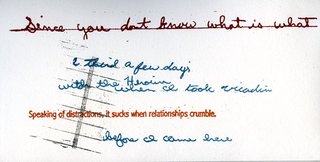 Since you dont know what is what
I tried a few days
with the Heroin
when I took vicadin
Speaking of distractions, it sucks when relationships crumble.
before I came here